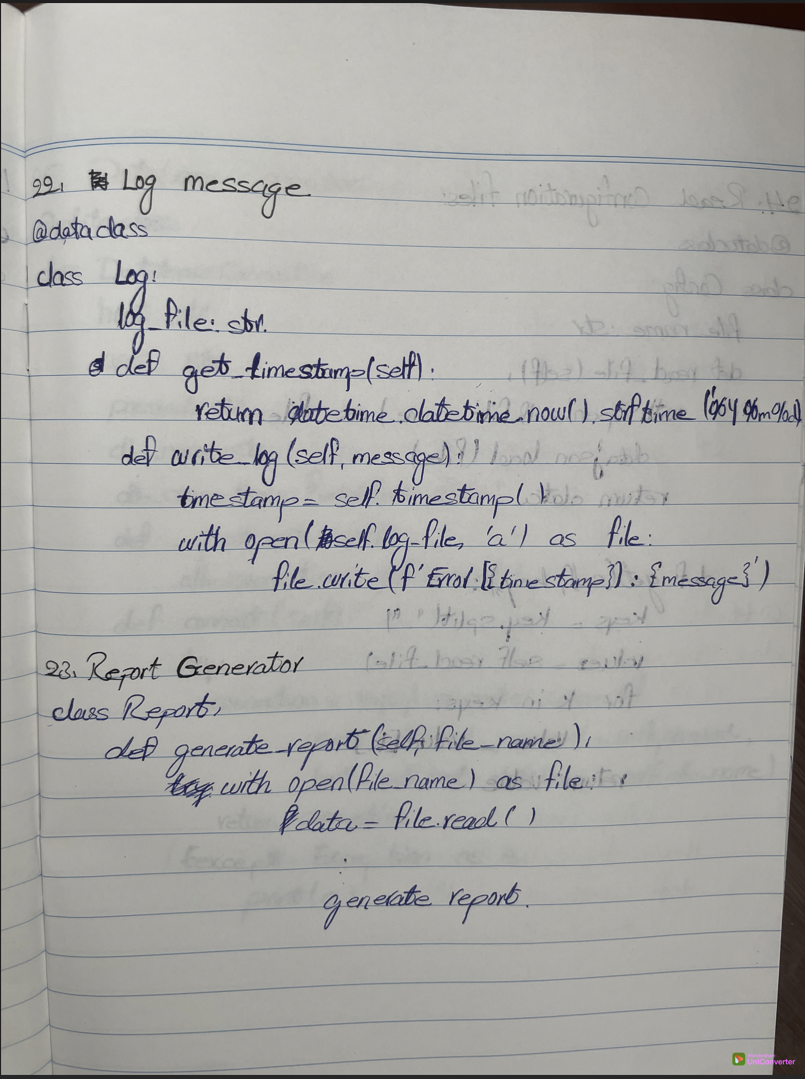 22. Log message
@dataclass
class Log:
log_file: str.
def get_timestamp(self):
return datetime.datetime.now().strftime('%Y%m%d')
def write_log(self, message):
timestamp = self.timestamp()
with open(self.log_file, 'a') as file:
file.write(f'Error:[{timestamp}]: {message}')
23. Report Generator
class Report:
def generate_report(self, file_name):
with open(file_name) as file:
data = file.read()
generate report.